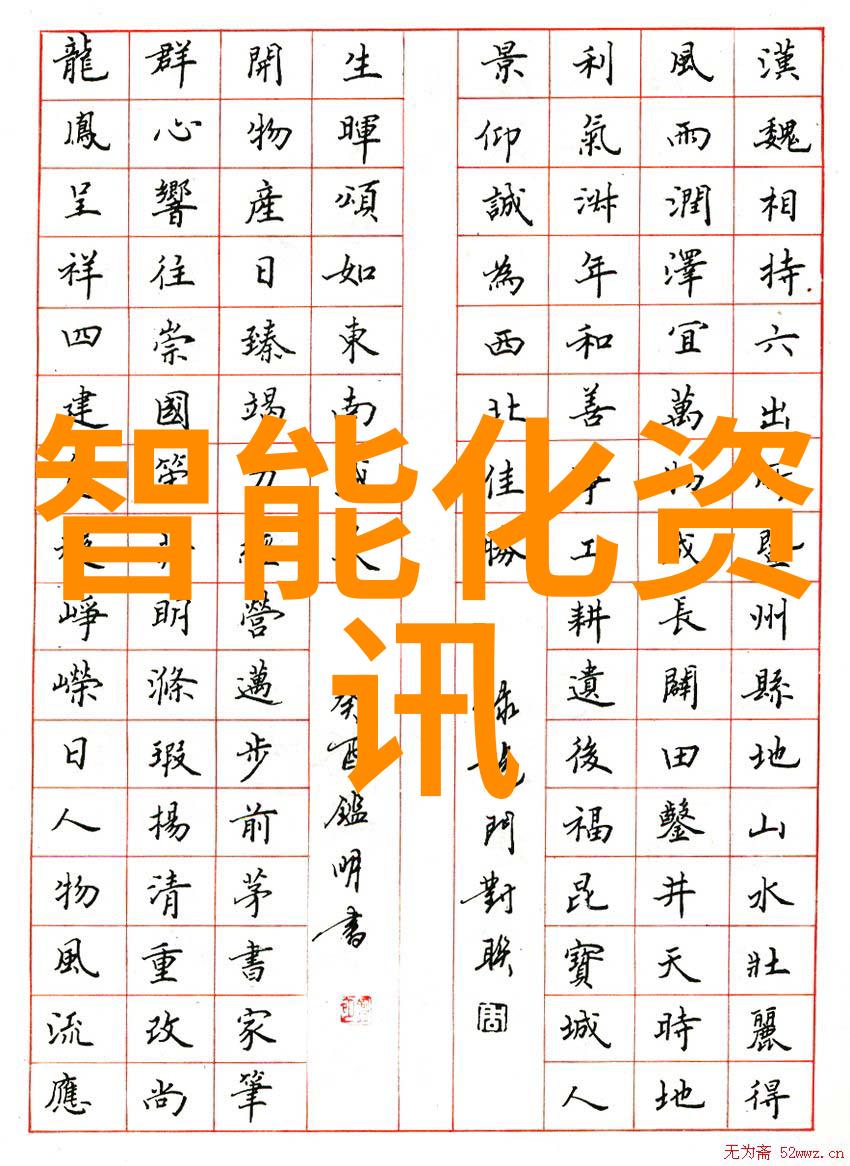 漢魏相持六出暨州縣地山水壯麗得
風雨潤澤宜萬物成長闢田鑿井天時地
利氣淋年和善爭工耕遺後福昆寶城人
景仰誠為西北佳勝
門對聯
龍鳳呈祥四建崢嶸日人物風流應
群心響往崇國榮明滌瑕揚清重改尚
開物產日臻竭力經營邁步前茅書家筆
生暉頌如東南
癸酉鑑明書
智能化资
讯
无为斋 52wwz.cn